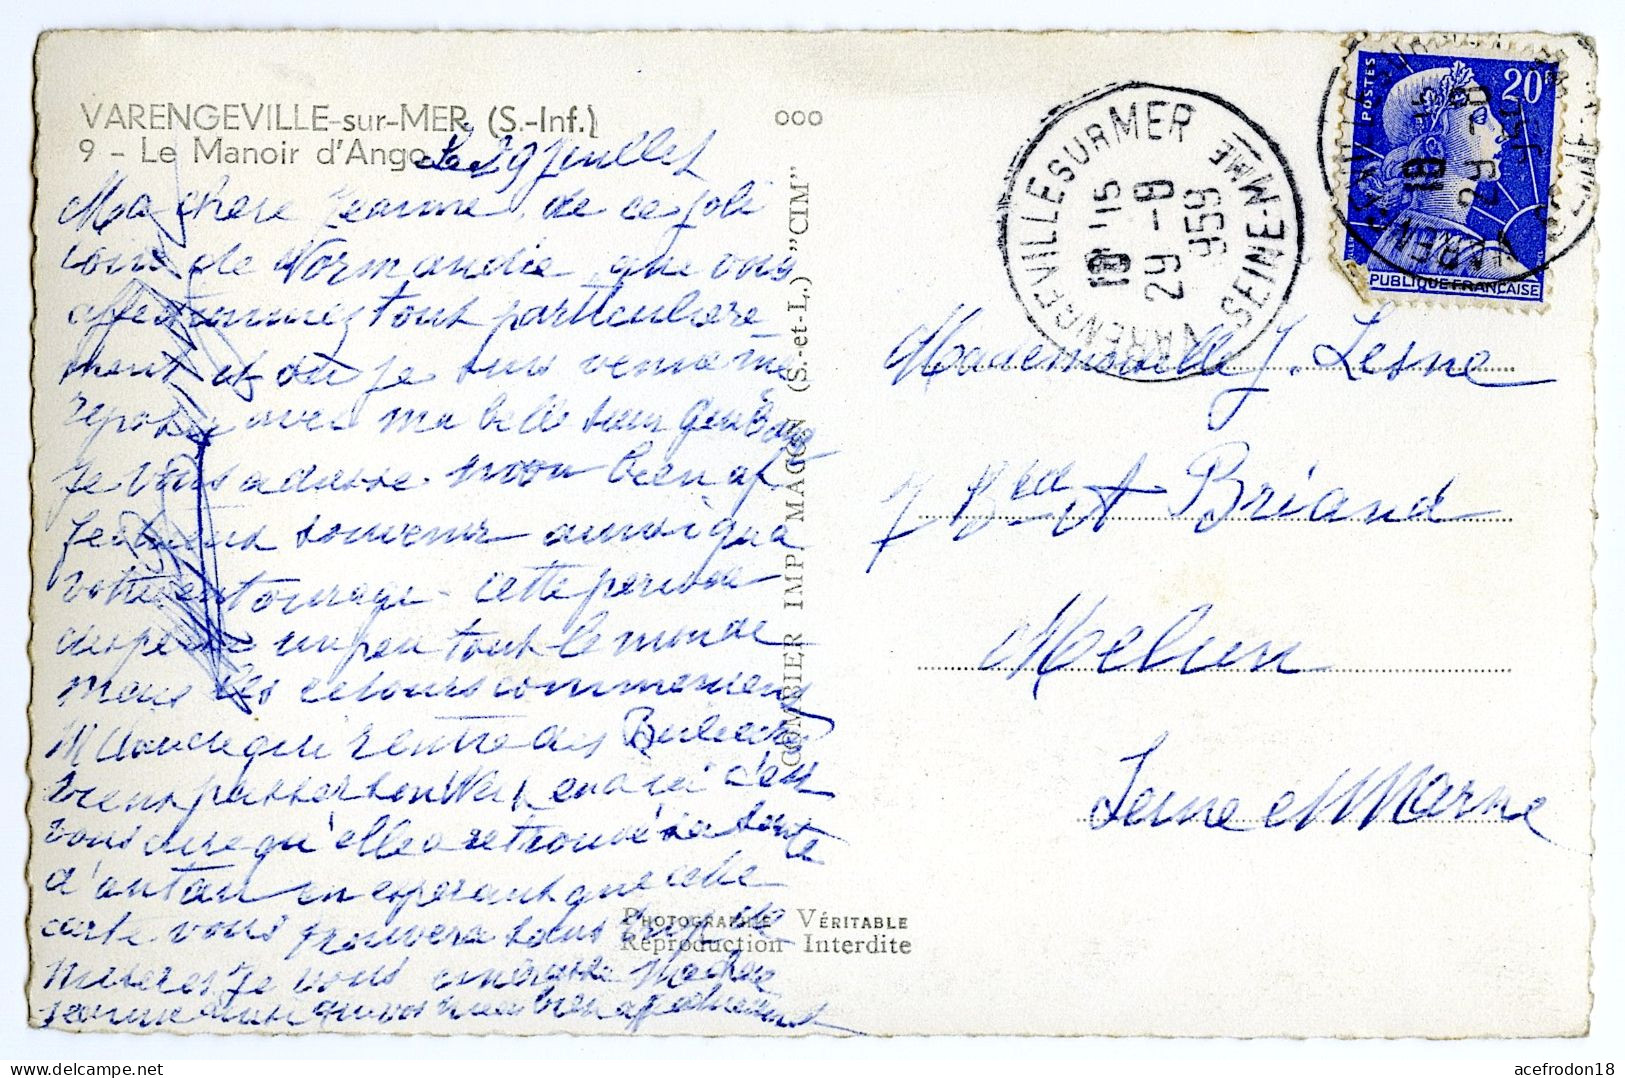 VARENGEVILLE-sur-MER (S.-Inf.)
9 - Le Manoir d'Ango
Le 29 Juillet
Ma chère Jeanne, de ce joli
coin de Normandie que vous
affectionnez tout particulière
ment et où je suis venue me
reposer avec ma belle sœur
Je vous adresse mon bien af
fectueux souvenir ainsi qu'à
votre entourage. cette période
disperse un peu tout le monde
mais les retours commencent
qui rentre des
vient passer son Week end ici c'est
vous dire qu'elle a retrouvé sa santé
d'antan en espérant que cette
carte vous trouvera tous
Je vous embrasse Ma chère
Jeanne ainsi que vos bien affectueusement
000
COMBIER IMP. MACON (S.-et-L.) "CIM"
PHOTOGRAPHIE VÉRITABLE
Reproduction Interdite
VARENGEVILLE SUR MER
SEINE-MME
19 15
29 -9
959
POSTES
20F
PUBLIQUE FRANÇAISE
Mademoiselle J. Lesne
7 Bd A Briand
Melun
Seine et Marne
acefrodon18